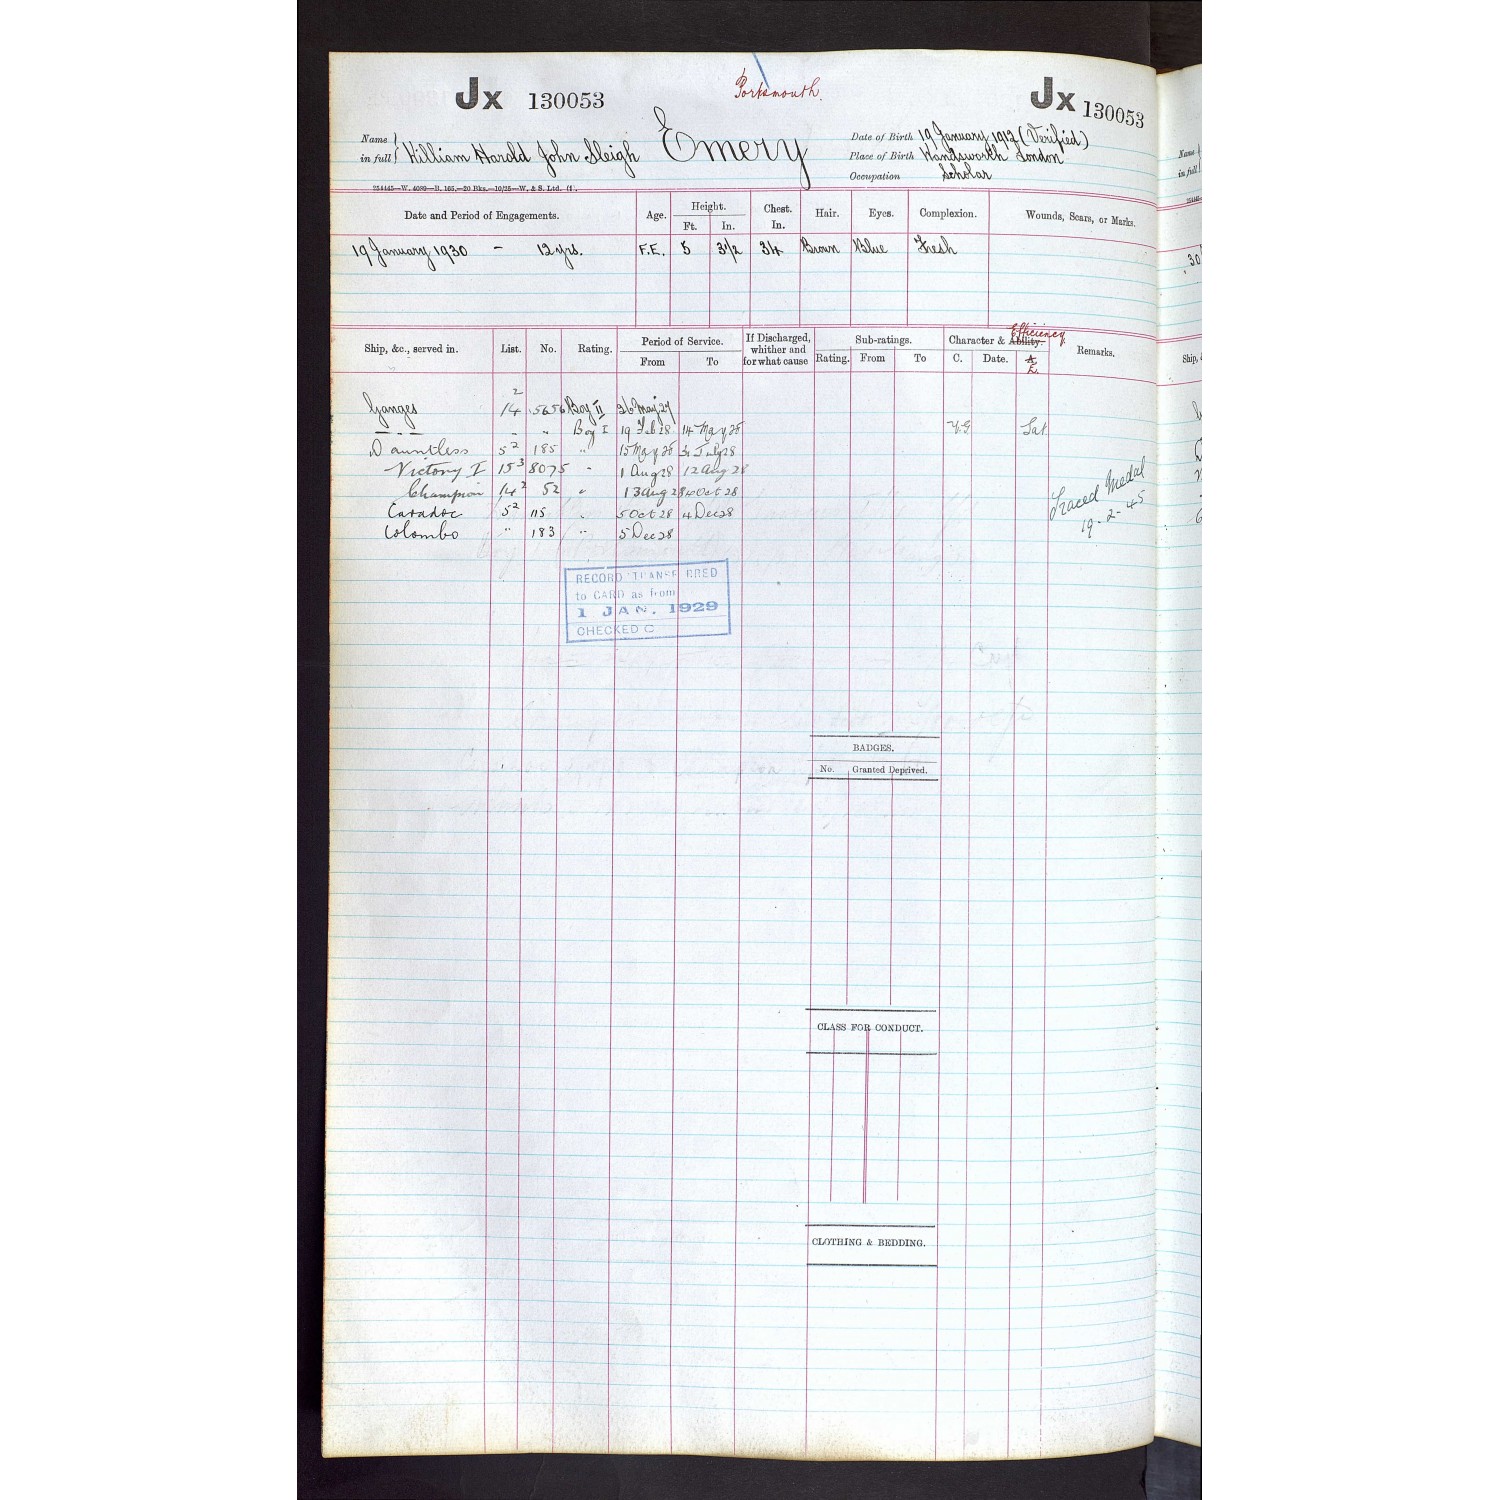 Portsmouth.
Jx 130053
Jx 130053
Name in full } William Harold John Sleigh Emery
Date of Birth 19 January 1912 (Verified)
Place of Birth Wandsworth London
Occupation Scholar
254445—W. 4089—B. 165.—20 Bks.—10/25—W. & S. Ltd. (1).
Date and Period of Engagements. Age. Height. Ft. In. Chest. In. Hair. Eyes. Complexion. Wounds, Scars, or Marks.
19 January 1930 - 12 yrs. F.E. 5 3½ 34 Brown Blue Fresh
Ship, &c., served in. List. No. Rating. Period of Service. From To If Discharged, whither and for what cause Sub-ratings. Rating. From To Character & Ability. Efficiency. C. Date. A. E. Remarks.
Ganges 14² 5656 Boy II 26 May 27
— · — " " Boy I 19 Feb 28 14 May 28 V.G Sat
Dauntless 5² 185 " 15 May 28 31 July 28
Victory I 15³ 8075 " 1 Aug 28 12 Aug 28
Champion 14² 52 " 13 Aug 28 4 Oct 28
Caradoc 5² 115 " 5 Oct 28 4 Dec 28
Colombo " 183 " 5 Dec 28
Traced Medal
19-2-45
RECORD TRANSFERRED
to CARD as from
1 JAN. 1929
CHECKED C
BADGES.
No. Granted Deprived.
CLASS FOR CONDUCT.
CLOTHING & BEDDING.
Name
in full
30
Ship, &